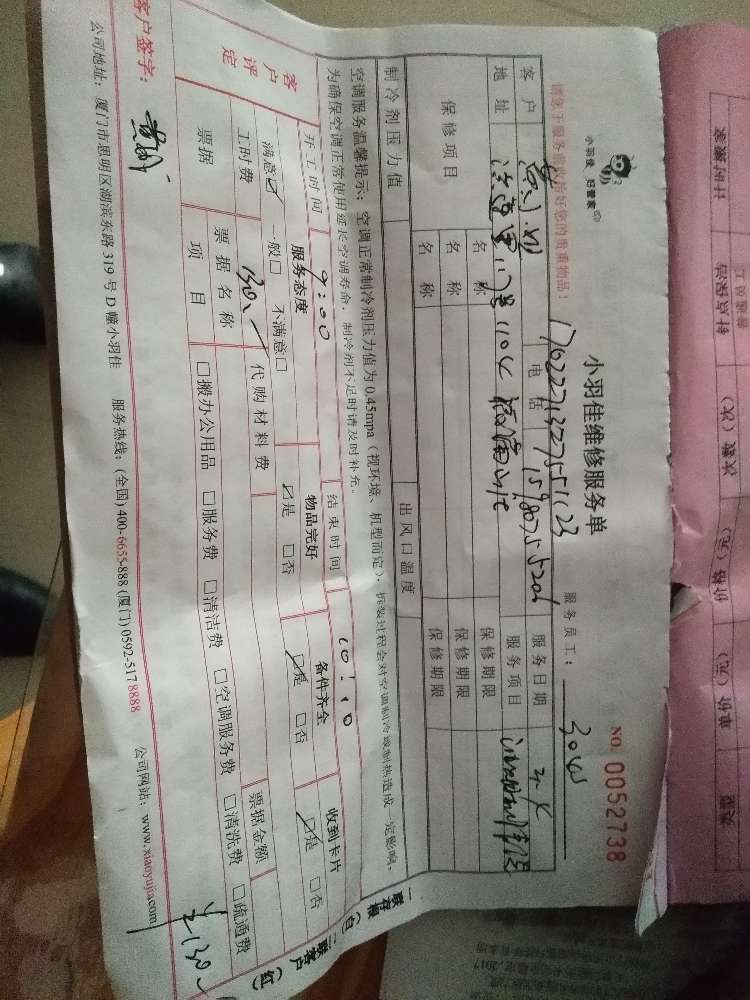 小羽佳 好管家
小羽佳维修服务单
NO. 0052738
请您于服务前收拾好您的贵重物品!
服务员工: 3045
客户
电话 15980755206
服务日期
17022713275551123
地址
服务项目
保修项目 名称 保修期限
名称 保修期限
名称 保修期限
制冷剂压力值 出风口温度
空调服务温馨提示: 空调正常制冷剂压力值为0.45mpa(视环境、机型而定), 拆装过程会对空调制冷或制热造成一定影响,
为确保空调正常使用延长空调寿命, 制冷剂不足时请及时补充。
开工时间 9:00 结束时间 10:10
客户评定 服务态度 物品完好 备件齐全 收到卡片
满意☑ 一般□ 不满意□ ☑是 □否 ☑是 □否 ☑是 □否
工时费 130 代购材料费
票据 票据名称 票据金额
项目 □搬办公用品 □服务费 □清洁费 □空调服务费 □清洗费 □疏通费
客户签字:
¥130
公司地址: 厦门市思明区湖滨东路319号D幢小羽佳 服务热线: (全国) 400-6655-888 (厦门) 0592-5178888 公司网站: www.xiaoyujia.com
一联存根(白) 二联客户(红)
计时搬家
钟点保洁
次数(次)
价格(元)
单价(元)
类型